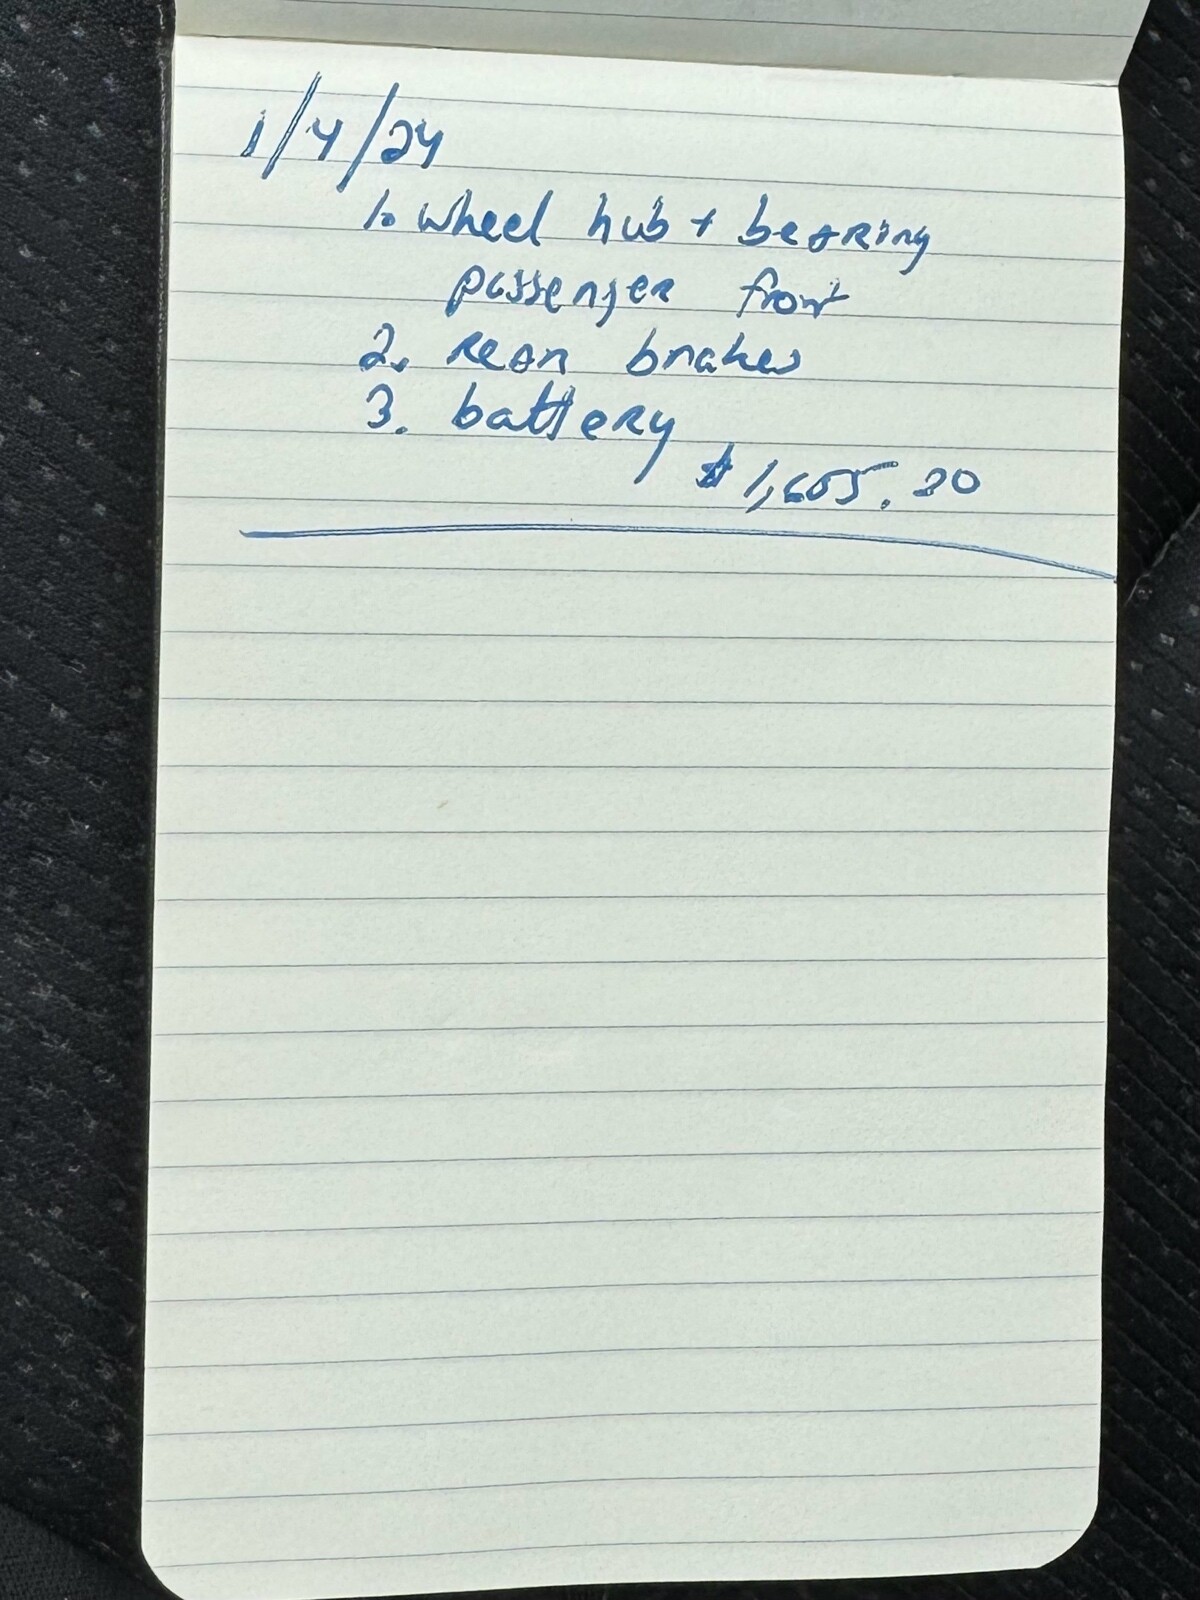 1/4/24
1. wheel hub + bearing
passenger front
2. rear brakes
3. battery
$1,605.20